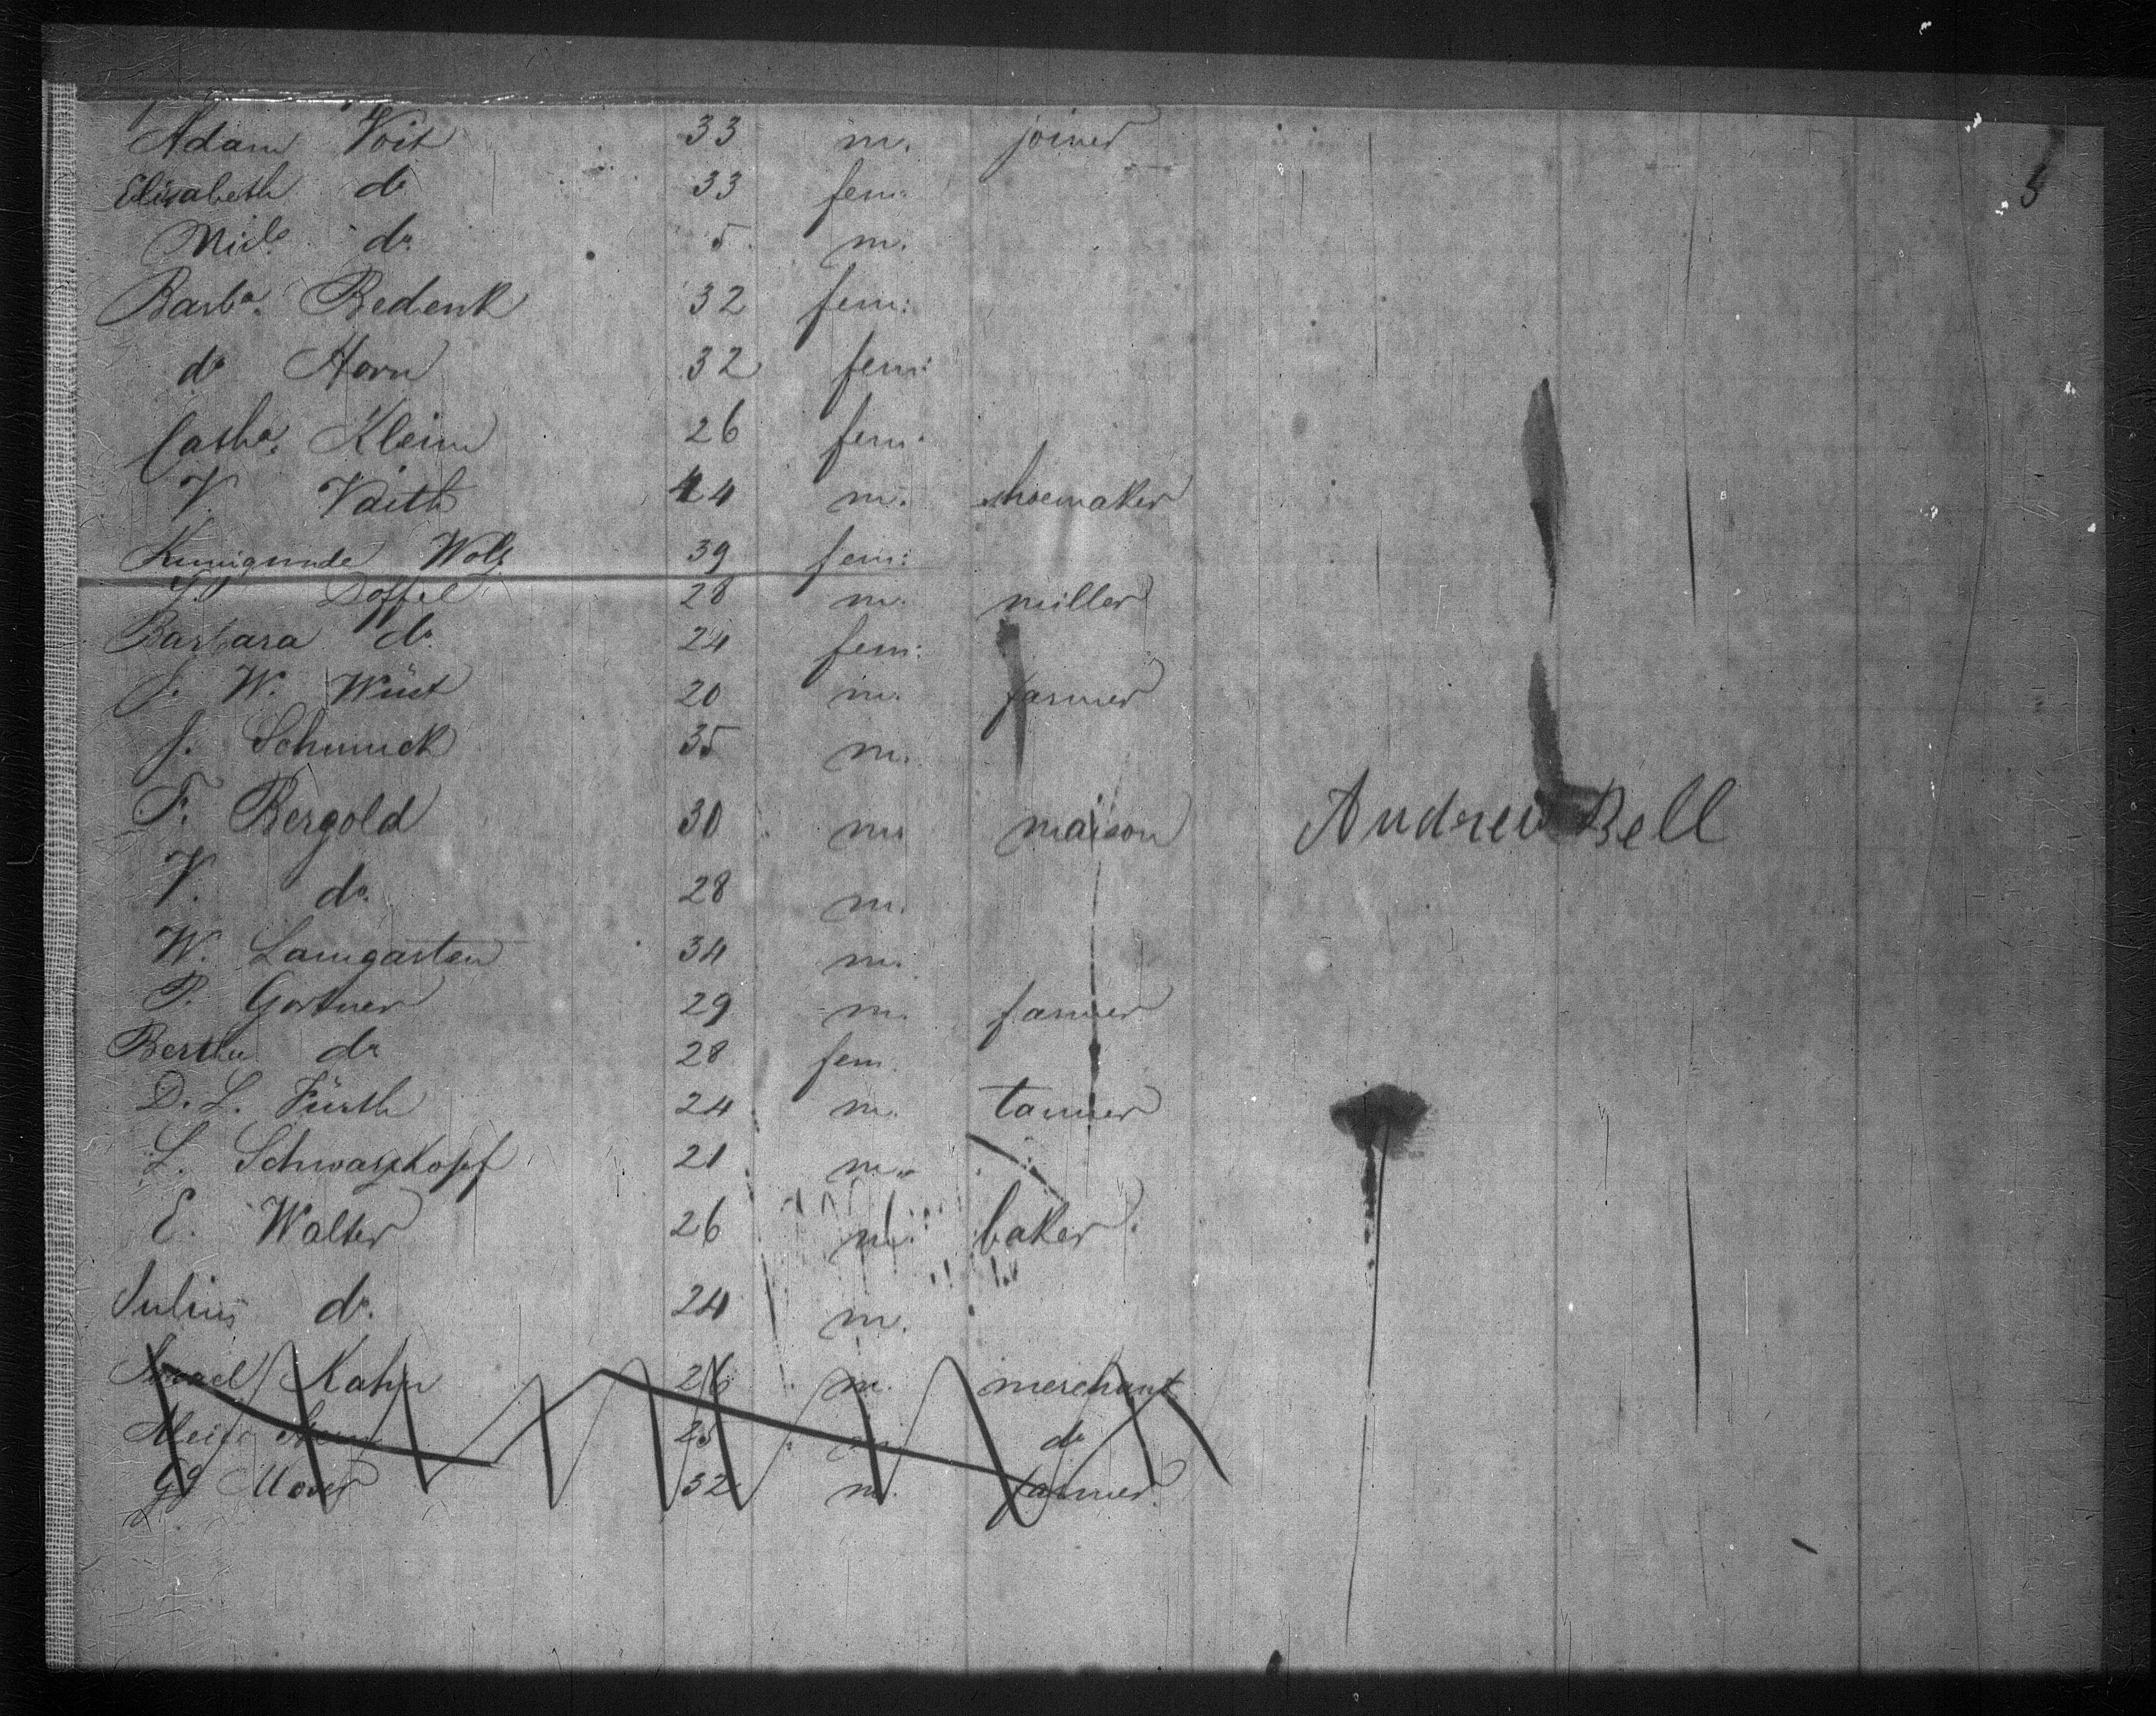 Adam Voit 33 m. joiner
Elisabeth do 33 fem: 5
do. 5 m.
Barba. Bedenk 32 fem:
do Horn 32 fem:
Catha. Klein 26 fem:
V. Vaith 44 m. shoemaker
Kunigunde Wolz 39 fem:
Doffel 28 m. miller
Barbara do. 24 fem:
J. W. Wüst 20 m. farmer
J. Schmuck 35 m.
F. Bergold 30 m maison Andrew Bell
V. do. 28 m.
W. Lamgarten 34 m.
P. Gortner 29 m. farmer
Bertha do 28 fem.
D. L. Fürth 24 m. tanner
L. Schwarzkopf 21 m.
E. Walter 26 m. baker.
Julius do. 24 m.
Kahn 26 m. merchant
25 m do
Moser 32 m. farmer.